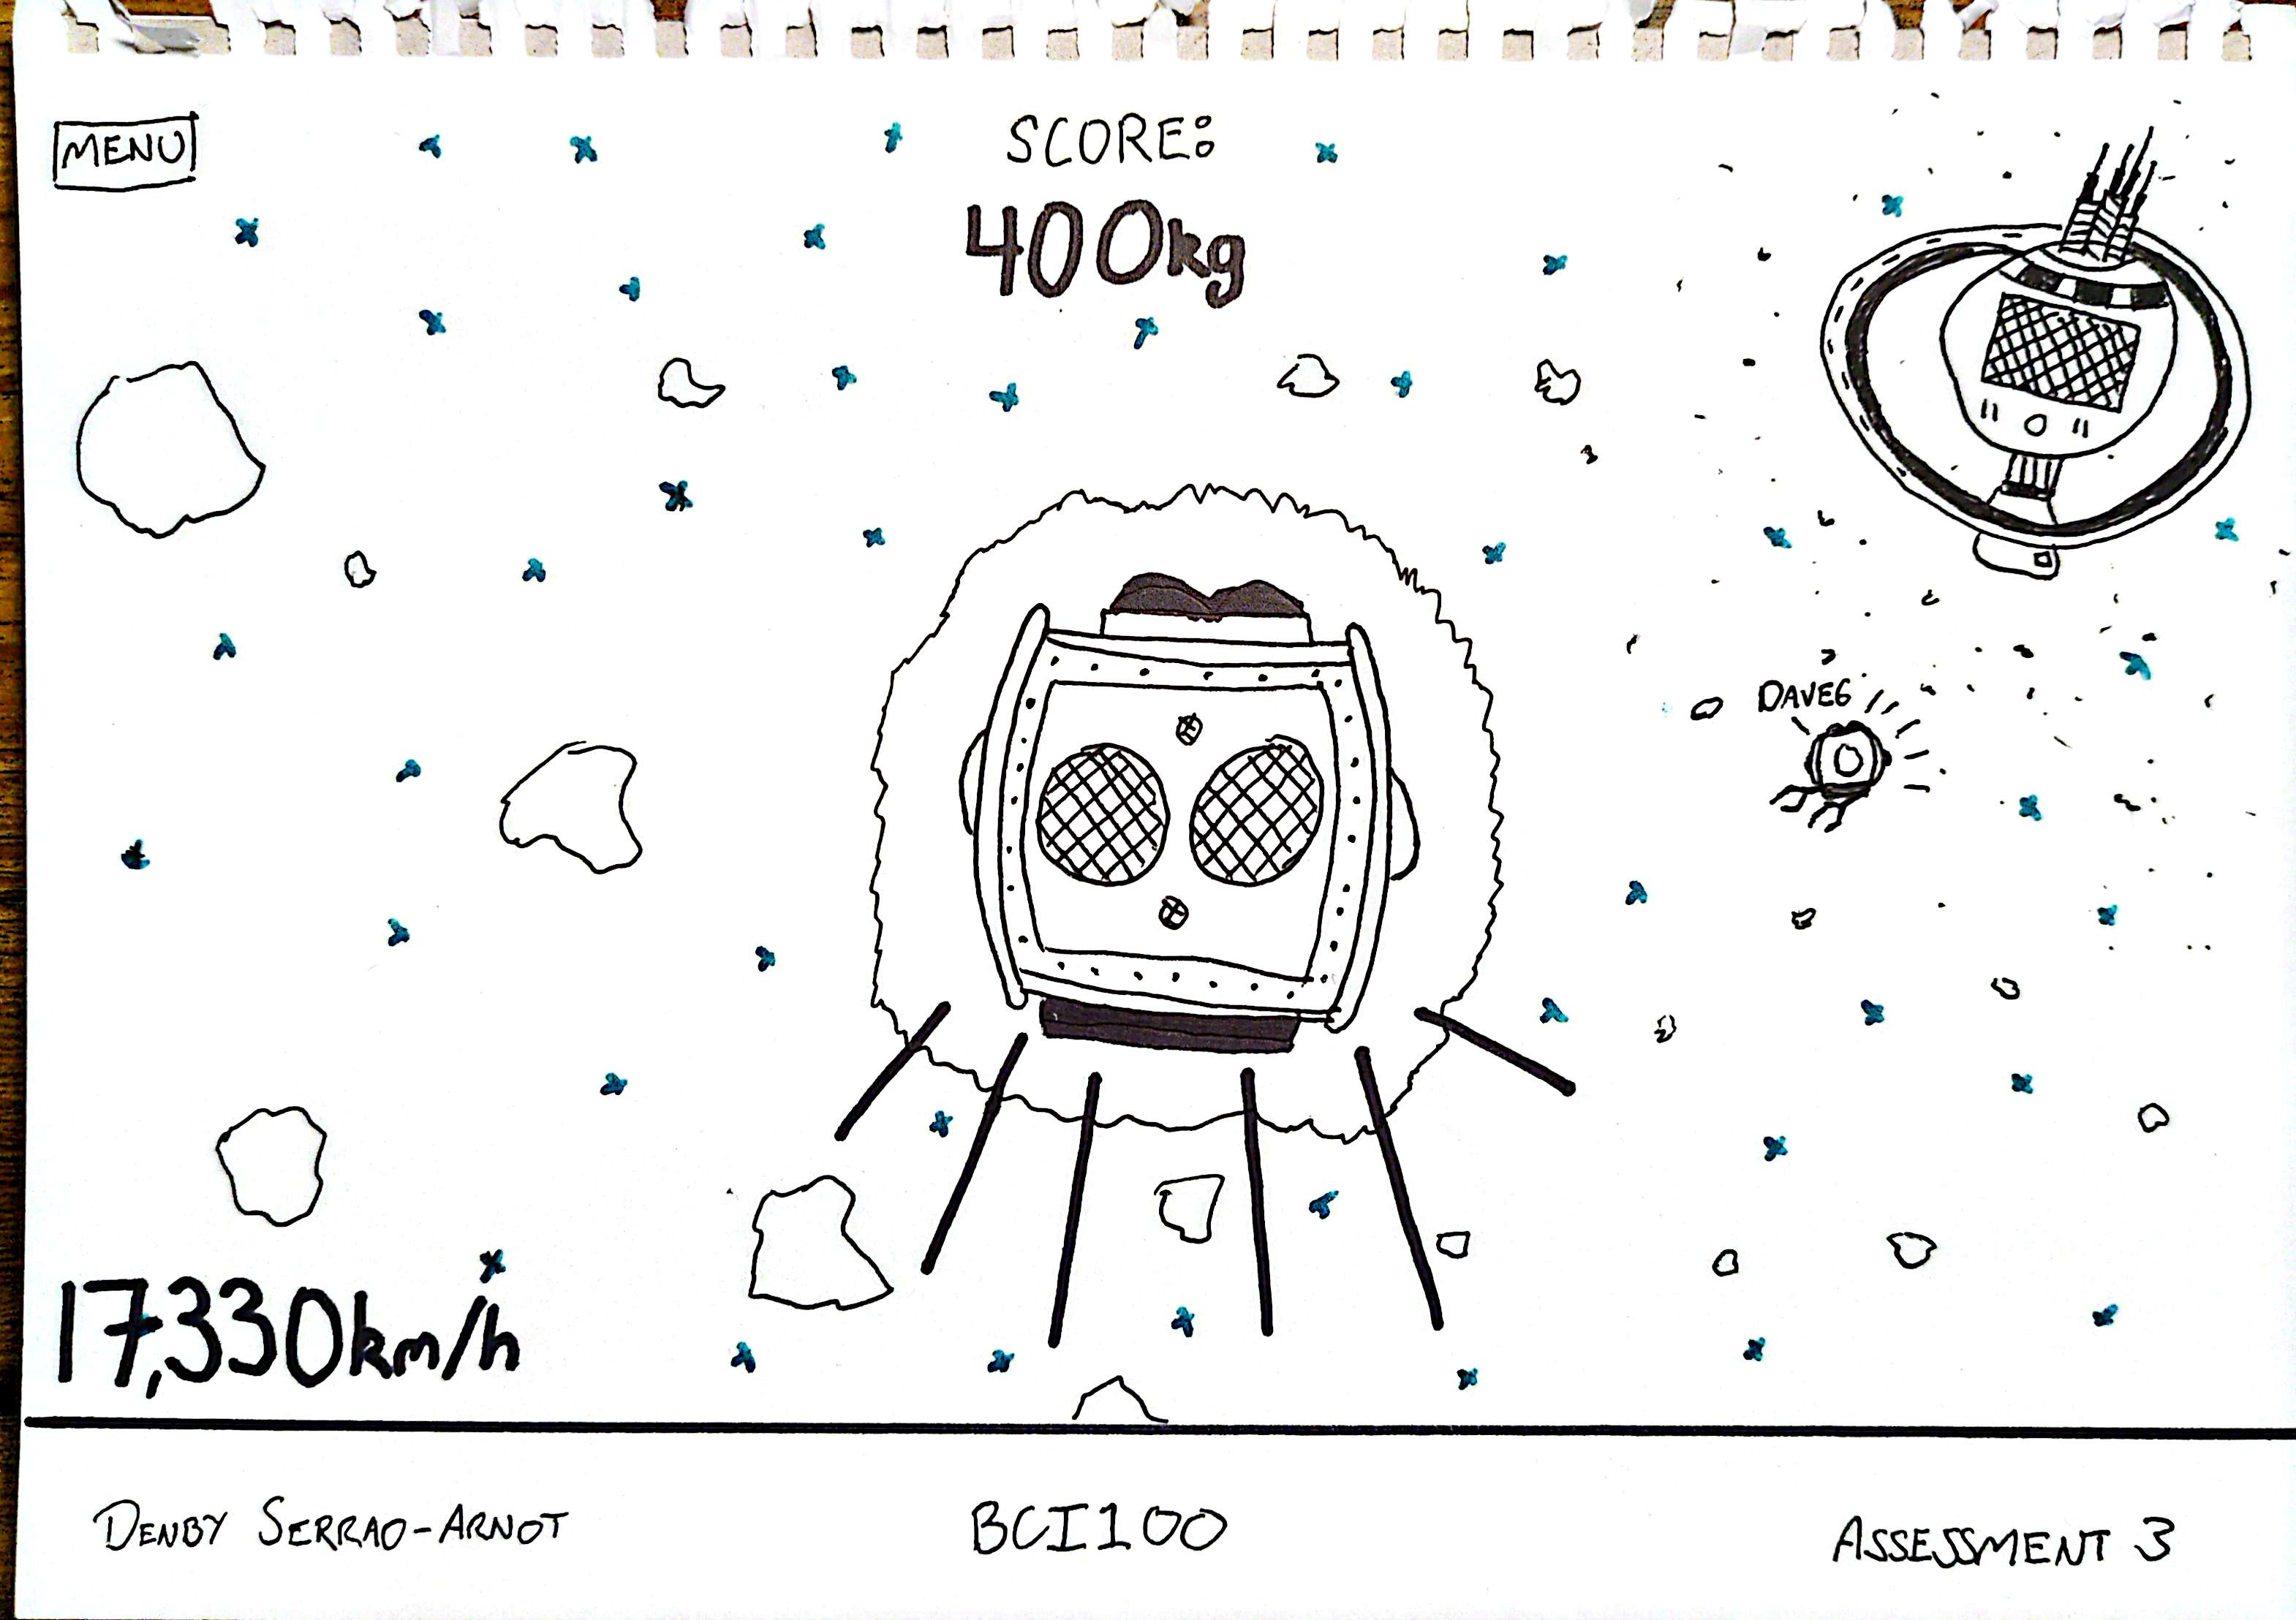 MENU
SCORE:
400kg
DAVE6
17,330km/h
DENBY SERRAO-ARNOT
BCI100
ASSESSMENT 3